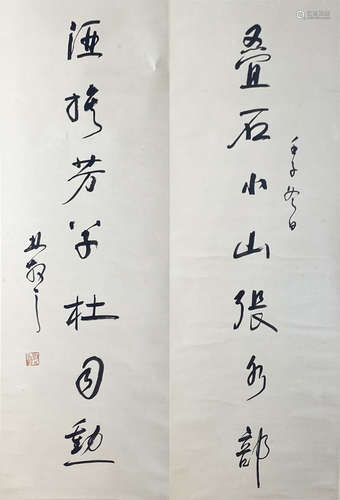 叠石小山張水部
壬子冬日
酒芳草杜司勳
林散之